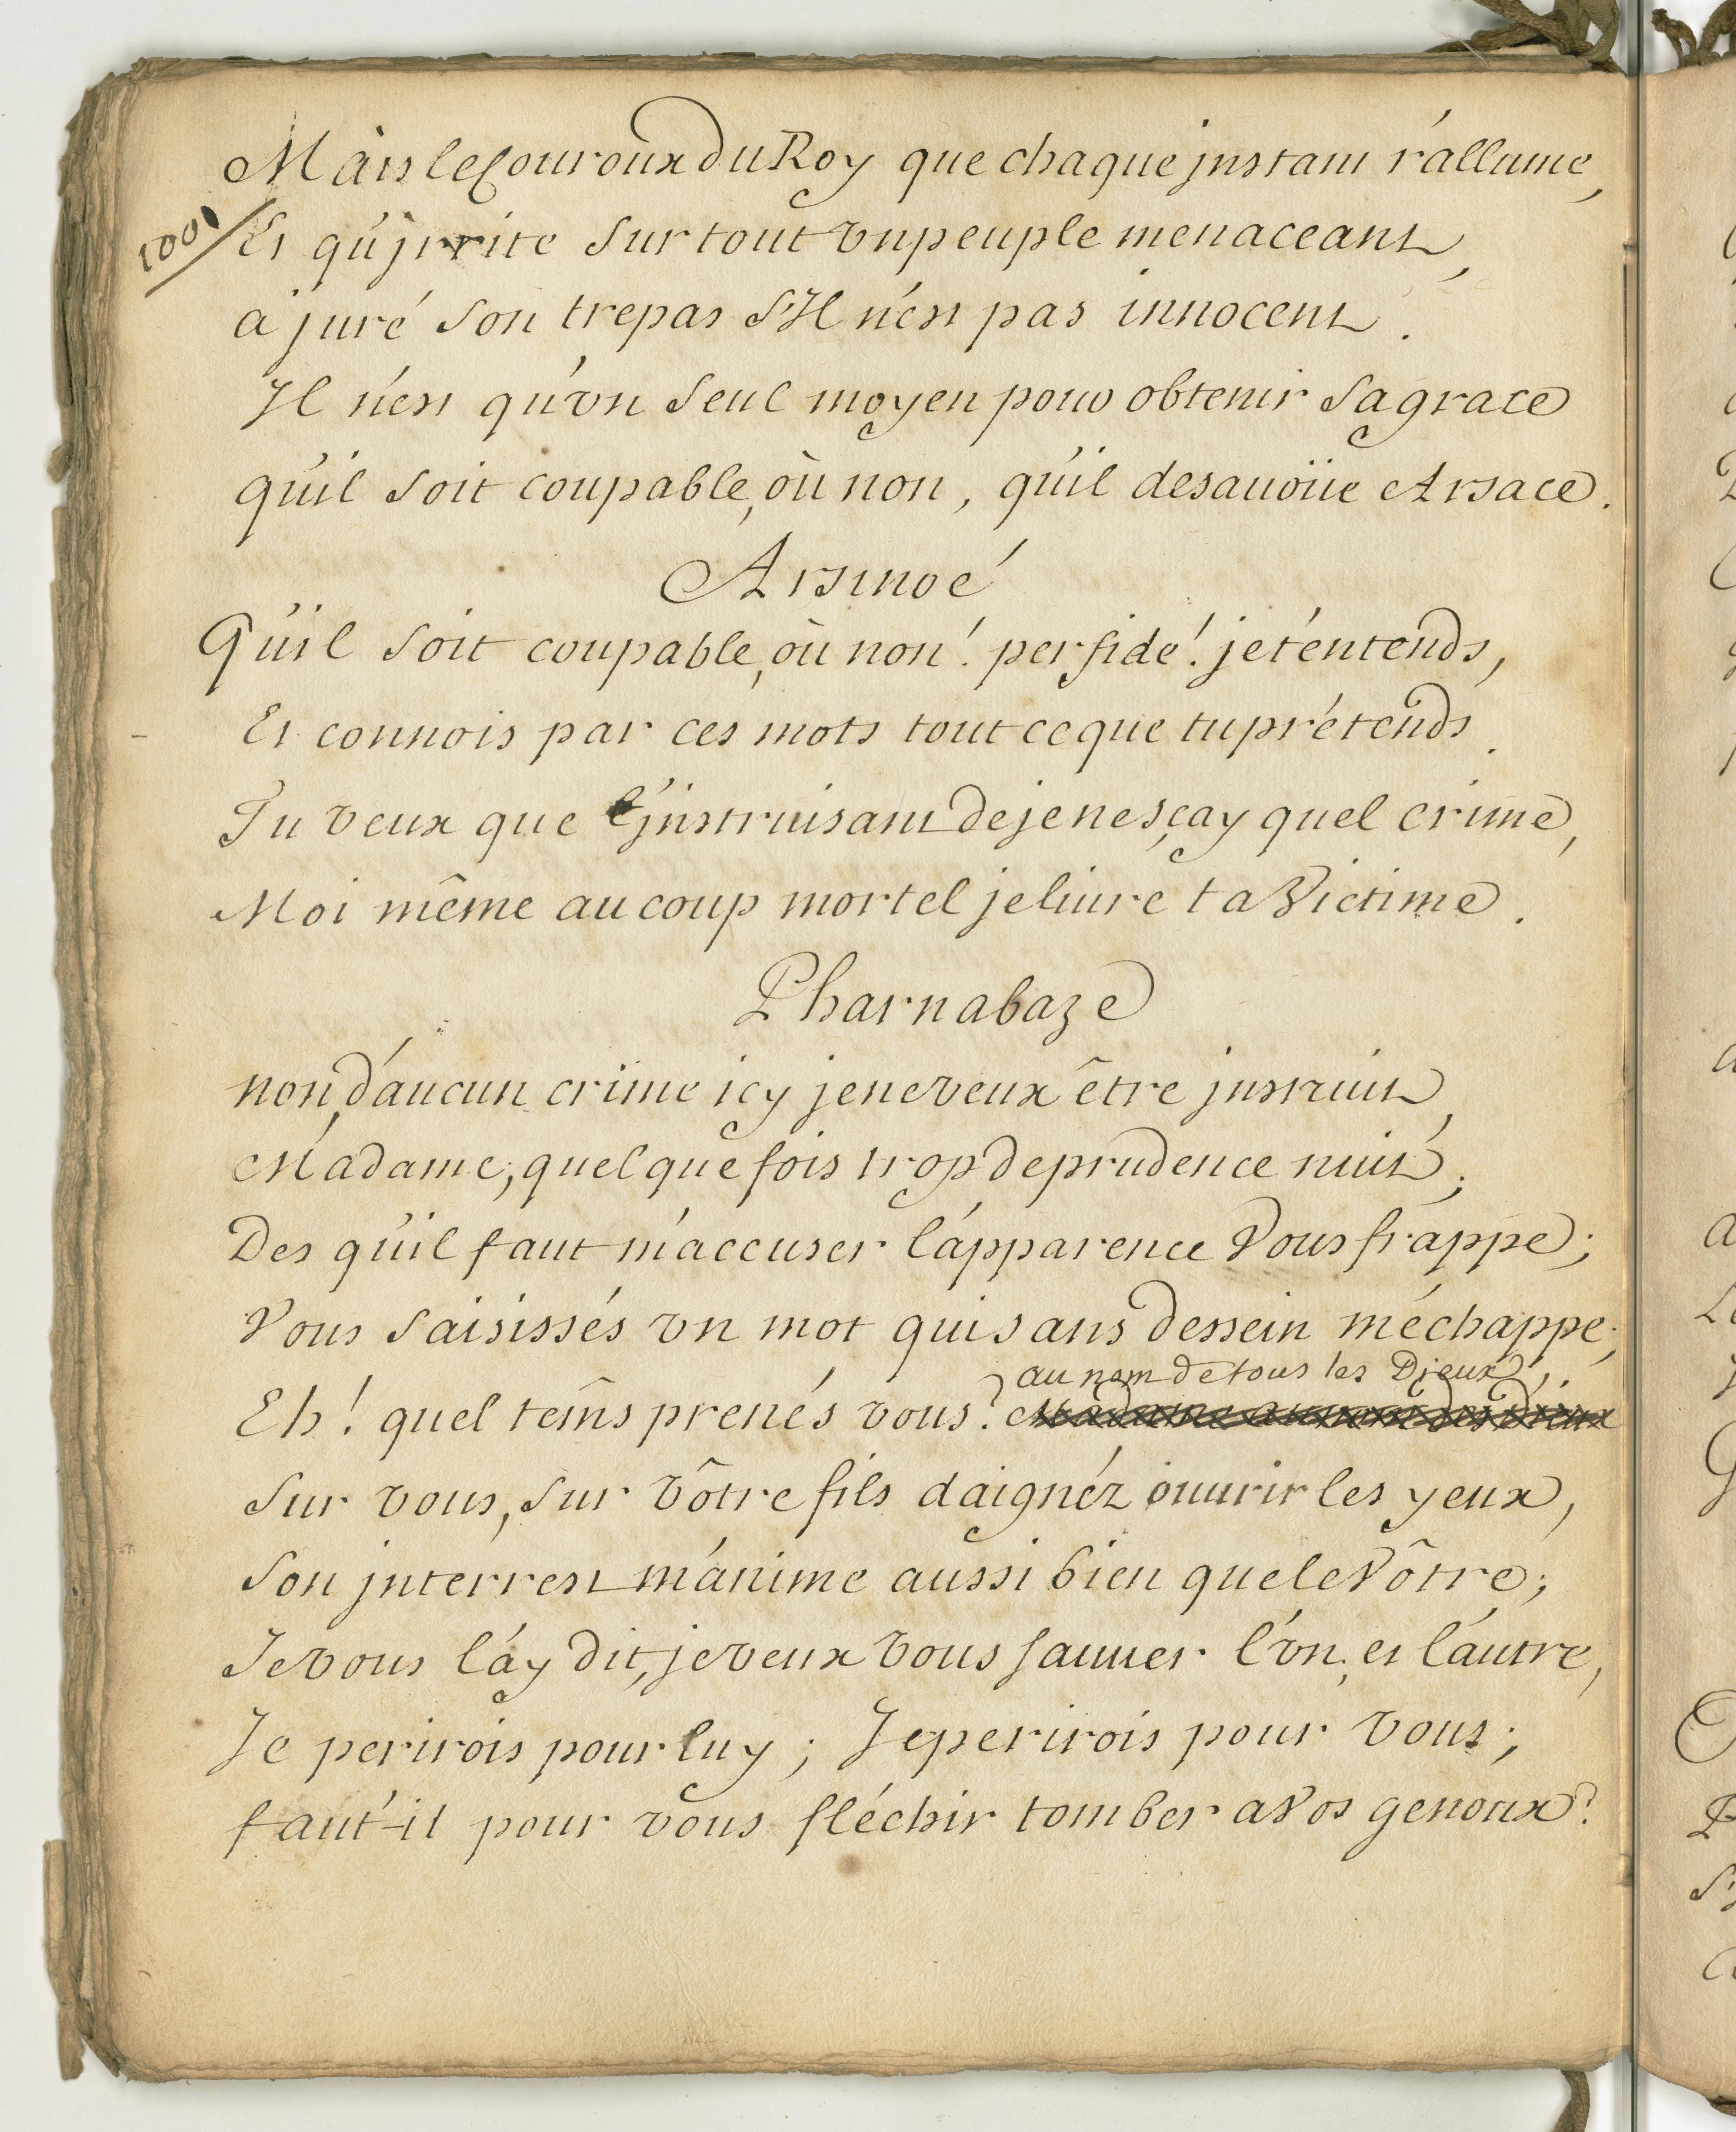 Mais le Couroux du Roy que chaque jnstant r'allume,
1001
Et qu'jrrite sur tout vn peuple menaceant,
a juré son trepas S'Il n'est pas innocent.
Il n'est qu'vn seul moyen pour obtenir sa grace
qu'il soit coupable, où non, qu'il desauoüe Arsace.
Arsinoé
Qu'il soit coupable, où non! perfide! je t'entends,
Et connois par ces mots tout ce que tu prétends.
Tu veux que t'jnstruisant de je ne sçay quel crime,
Moi même au coup mortel je liure ta Victime.
Pharnabaze
non, d'aucun crime icy je ne veux être jnstruit,
Madame, quelque fois trop de prudence nuit;
Des qu'il faut m'accuser l'apparence Vous frappe;
Vous saisissés vn mot qui sans dessein m'échappe;
au nom de tous les Dieux,
Eh! quel tem̃s prenés vous? Madame au nom des Dieux
sur vous, sur vôtre fils daignéz ouurir les yeux,
son jnterrest m'anime aussi bien que le Vôtre;
Je vous l'ay dit, je veux vous sauuer l'vn, et l'autre,
Je perirois pour luy; Je perirois pour vous;
faut-il pour vous fléchir tomber a Vos genoux?